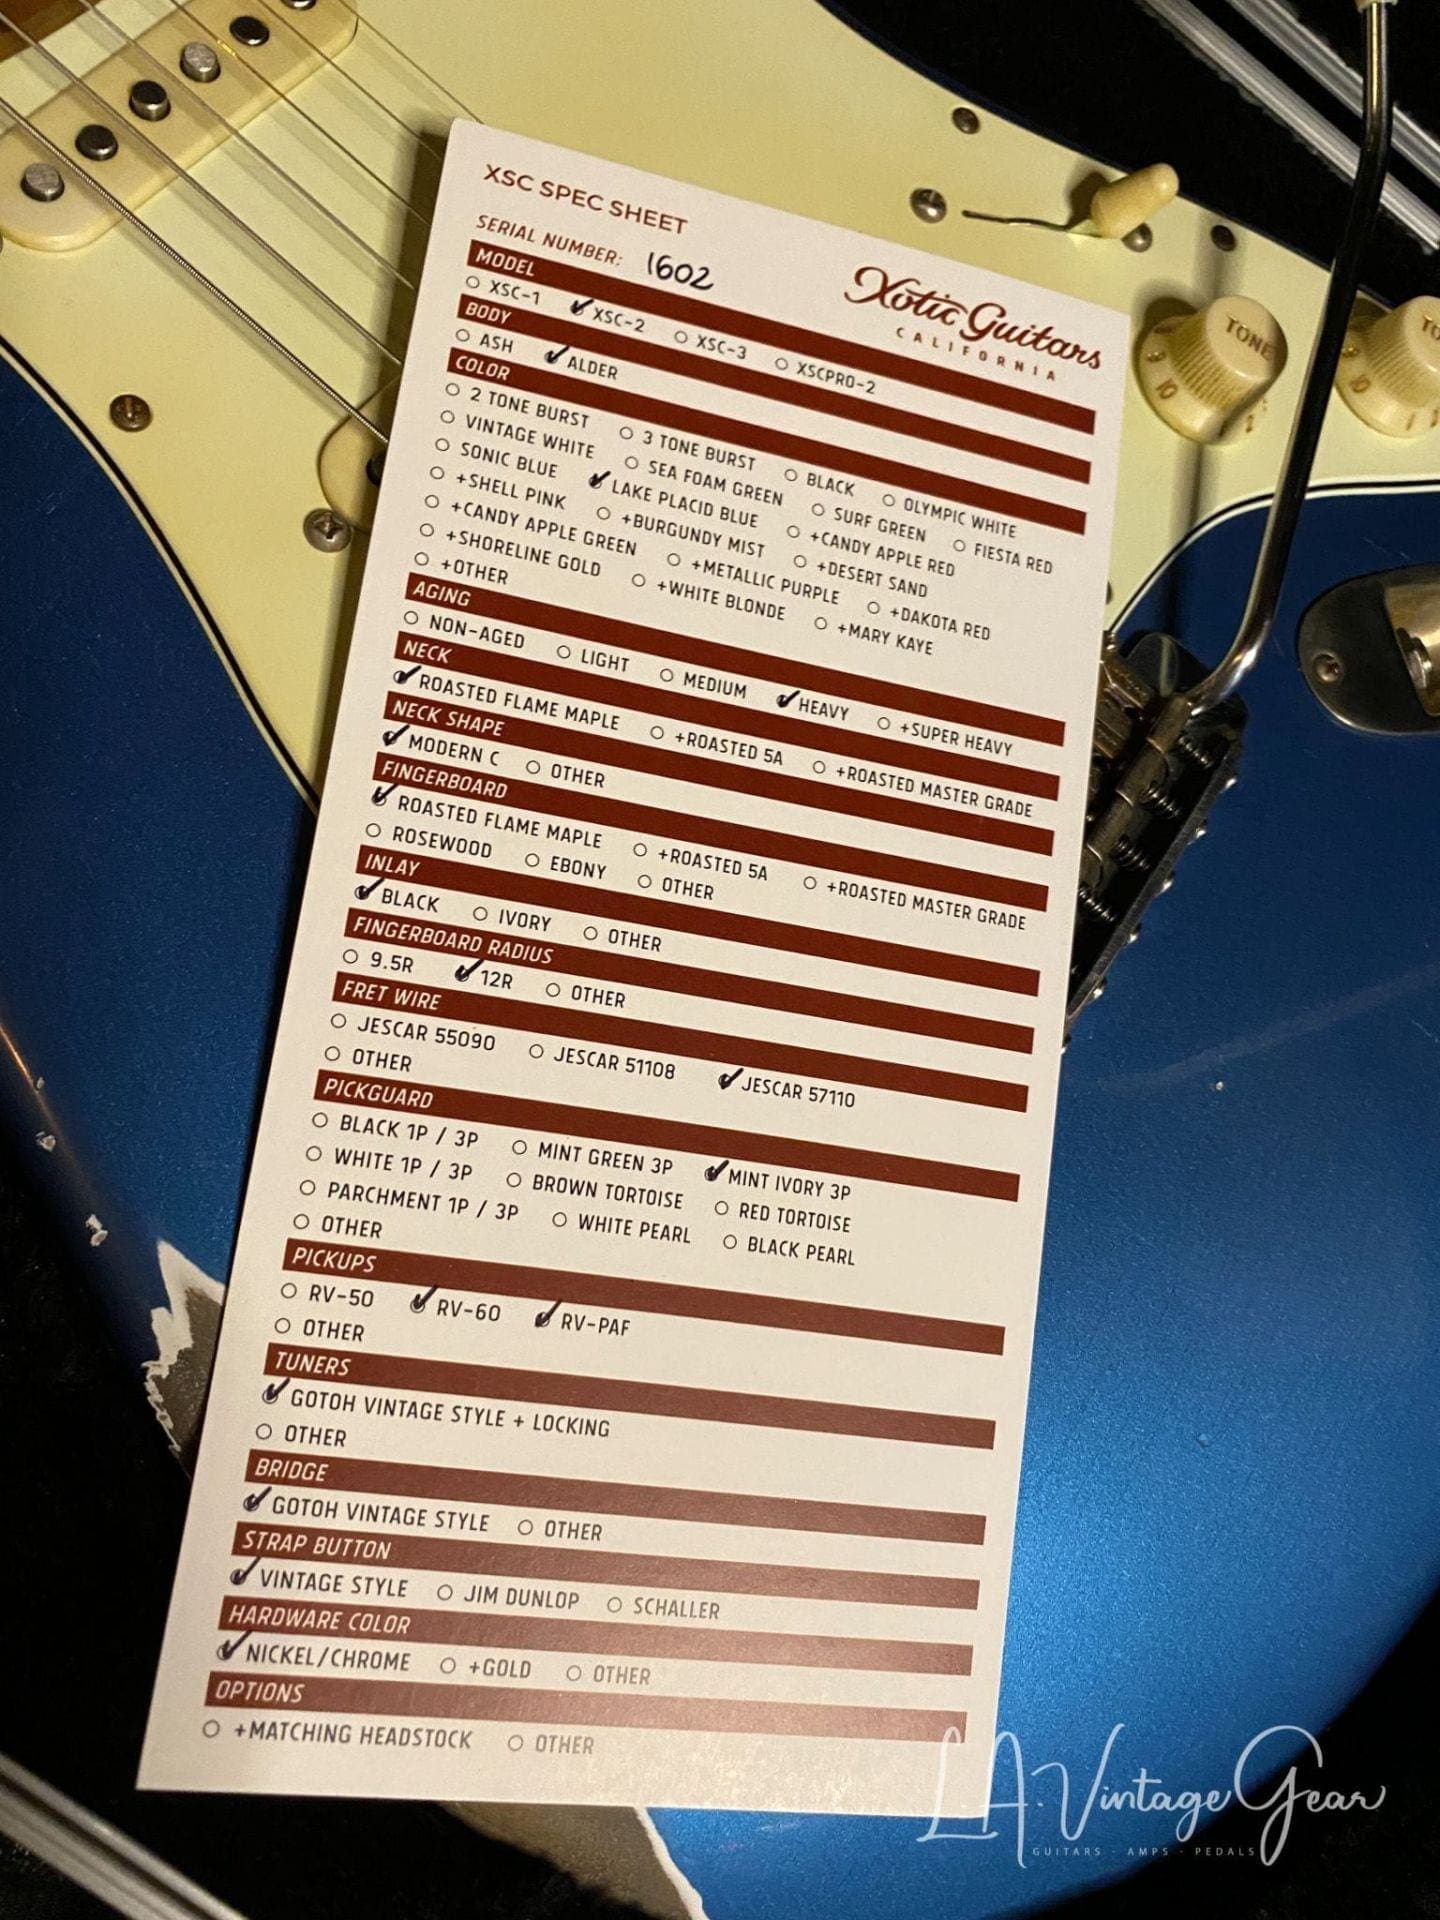 XSC SPEC SHEET
SERIAL NUMBER: 1602
Xotic Guitars
CALIFORNIA
MODEL
XSC-1 ✓ XSC-2 XSC-3 XSCPRO-2
BODY
ASH ✓ ALDER
COLOR
2 TONE BURST 3 TONE BURST BLACK OLYMPIC WHITE
VINTAGE WHITE SEA FOAM GREEN SURF GREEN FIESTA RED
SONIC BLUE ✓ LAKE PLACID BLUE +CANDY APPLE RED
+SHELL PINK +BURGUNDY MIST +DESERT SAND
+CANDY APPLE GREEN +METALLIC PURPLE +DAKOTA RED
+SHORELINE GOLD +WHITE BLONDE +MARY KAYE
+OTHER
AGING
NON-AGED LIGHT MEDIUM ✓ HEAVY +SUPER HEAVY
NECK
✓ ROASTED FLAME MAPLE +ROASTED 5A +ROASTED MASTER GRADE
NECK SHAPE
✓ MODERN C OTHER
FINGERBOARD
✓ ROASTED FLAME MAPLE +ROASTED 5A +ROASTED MASTER GRADE
ROSEWOOD EBONY OTHER
INLAY
✓ BLACK IVORY OTHER
FINGERBOARD RADIUS
9.5R ✓ 12R OTHER
FRET WIRE
JESCAR 55090 JESCAR 51108 ✓ JESCAR 57110
OTHER
PICKGUARD
BLACK 1P / 3P MINT GREEN 3P ✓ MINT IVORY 3P
WHITE 1P / 3P BROWN TORTOISE RED TORTOISE
PARCHMENT 1P / 3P WHITE PEARL BLACK PEARL
OTHER
PICKUPS
RV-50 ✓ RV-60 ✓ RV-PAF
OTHER
TUNERS
✓ GOTOH VINTAGE STYLE + LOCKING
OTHER
BRIDGE
✓ GOTOH VINTAGE STYLE OTHER
STRAP BUTTON
✓ VINTAGE STYLE JIM DUNLOP SCHALLER
HARDWARE COLOR
✓ NICKEL/CHROME +GOLD OTHER
OPTIONS
+MATCHING HEADSTOCK OTHER
TONE
10
9
2
10
L.A. Vintage Gear
GUITARS · AMPS · PEDALS